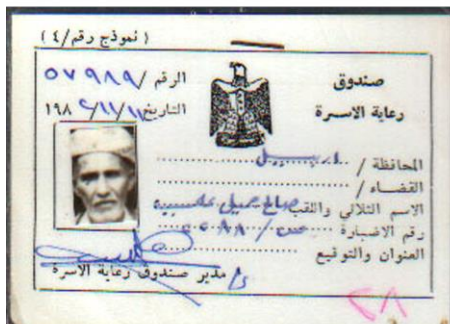 ( نموذج رقم/٤ )
صندوق
رعاية الاسرة
الرقم / ٥٧٩٨٩
التاريخ ١٩٨
المحافظة / اربيل
القضاء /
الاسم الثلاثي واللقب صالح جميل
رقم الاضبارة
العنوان والتوقيع
مدير صندوق رعاية الاسرة
٢٨